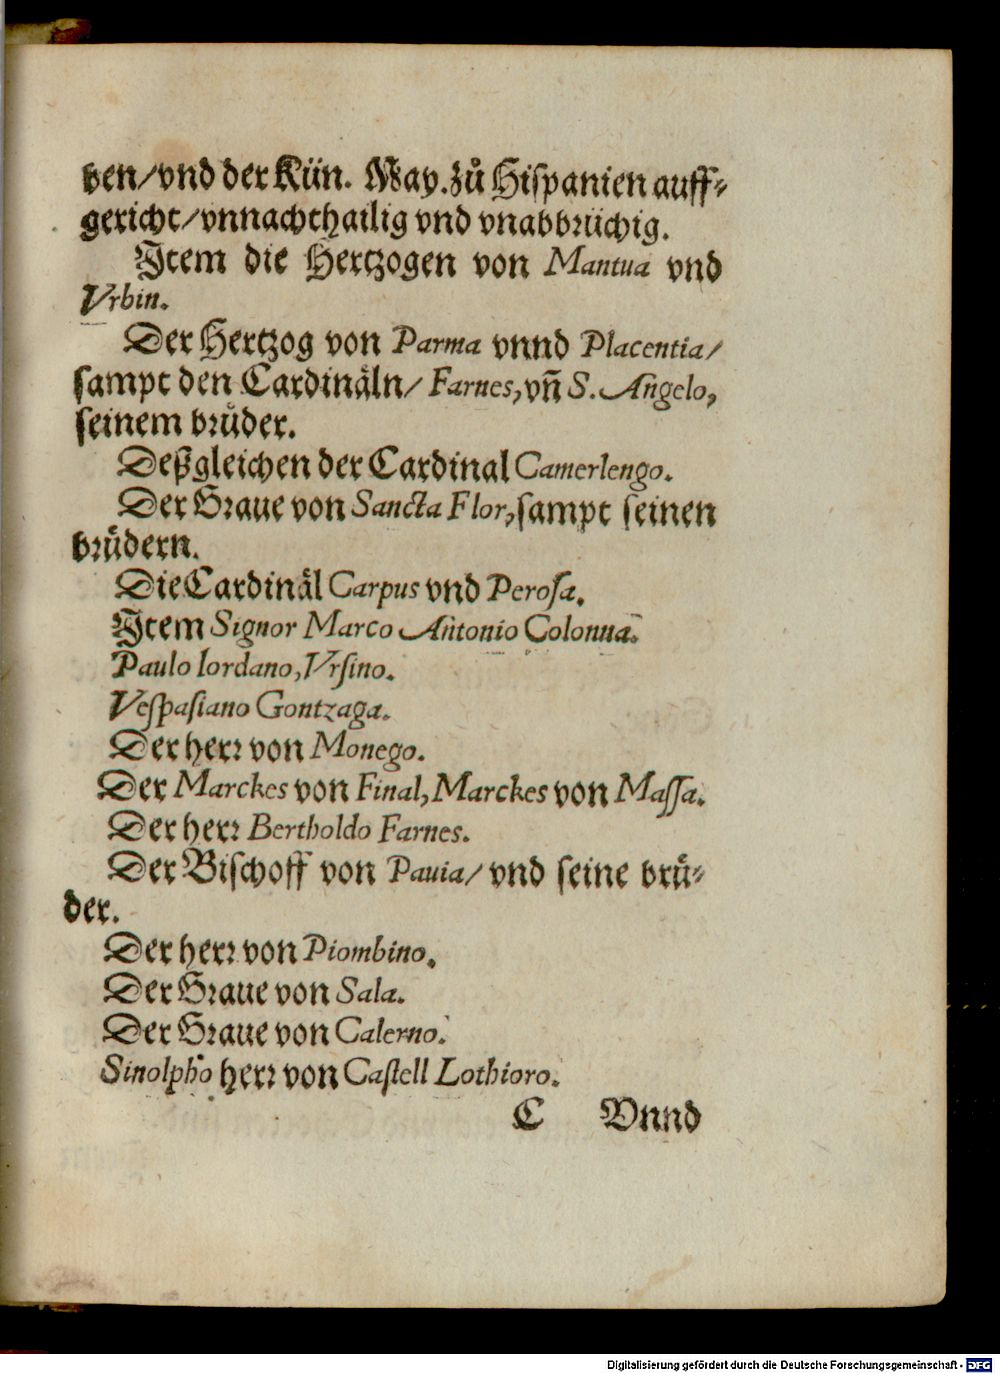 ben/vnd der Kün. May. zů Hispanien auff⸗
gericht/vnnachthailig vnd vnabbrüchig.
Item die Hertzogen von Mantua vnd
Vrbin.
Der Hertzog von Parma vnnd Placentia/
sampt den Cardinäln/ Farnes, vñ S. Angelo,
seinem brůder.
Deßgleichen der Cardinal Camerlengo.
Der Graue von Sancta Flor, sampt seinen
brüdern.
Die Cardinäl Carpus vnd Perosa.
Item Signor Marco Antonio Colonna.
Paulo Iordano, Vrsino.
Vespasiano Gontzaga.
Der herr von Monego.
Der Marckes von Final, Marckes von Massa.
Der herr Bertholdo Farnes.
Der Bischoff von Pauia/ vnd seine brü⸗
der.
Der herr von Piombino.
Der Graue von Sala.
Der Graue von Calerno.
Sinolpho herr von Castell Lothioro.
C Vnnd
Digitalisierung gefördert durch die Deutsche Forschungsgemeinschaft - DFG